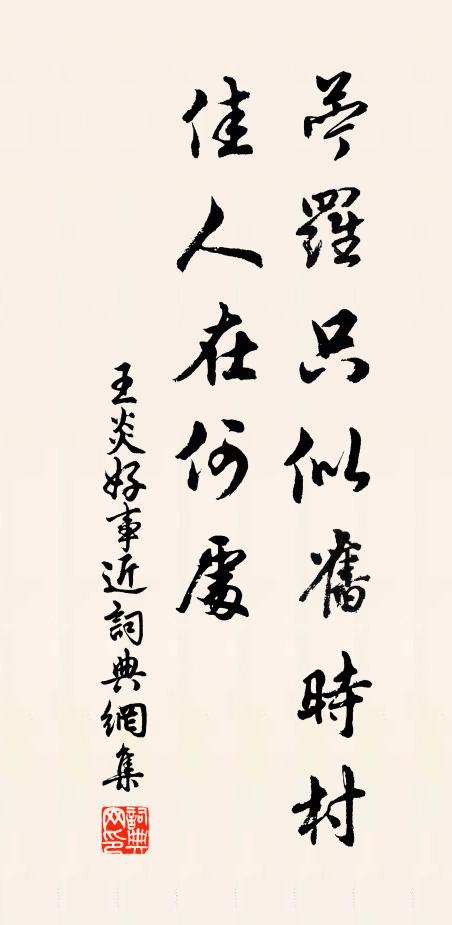 苧羅只似舊時村
佳人在何處
王炎好事近詞典網集
詞典網印